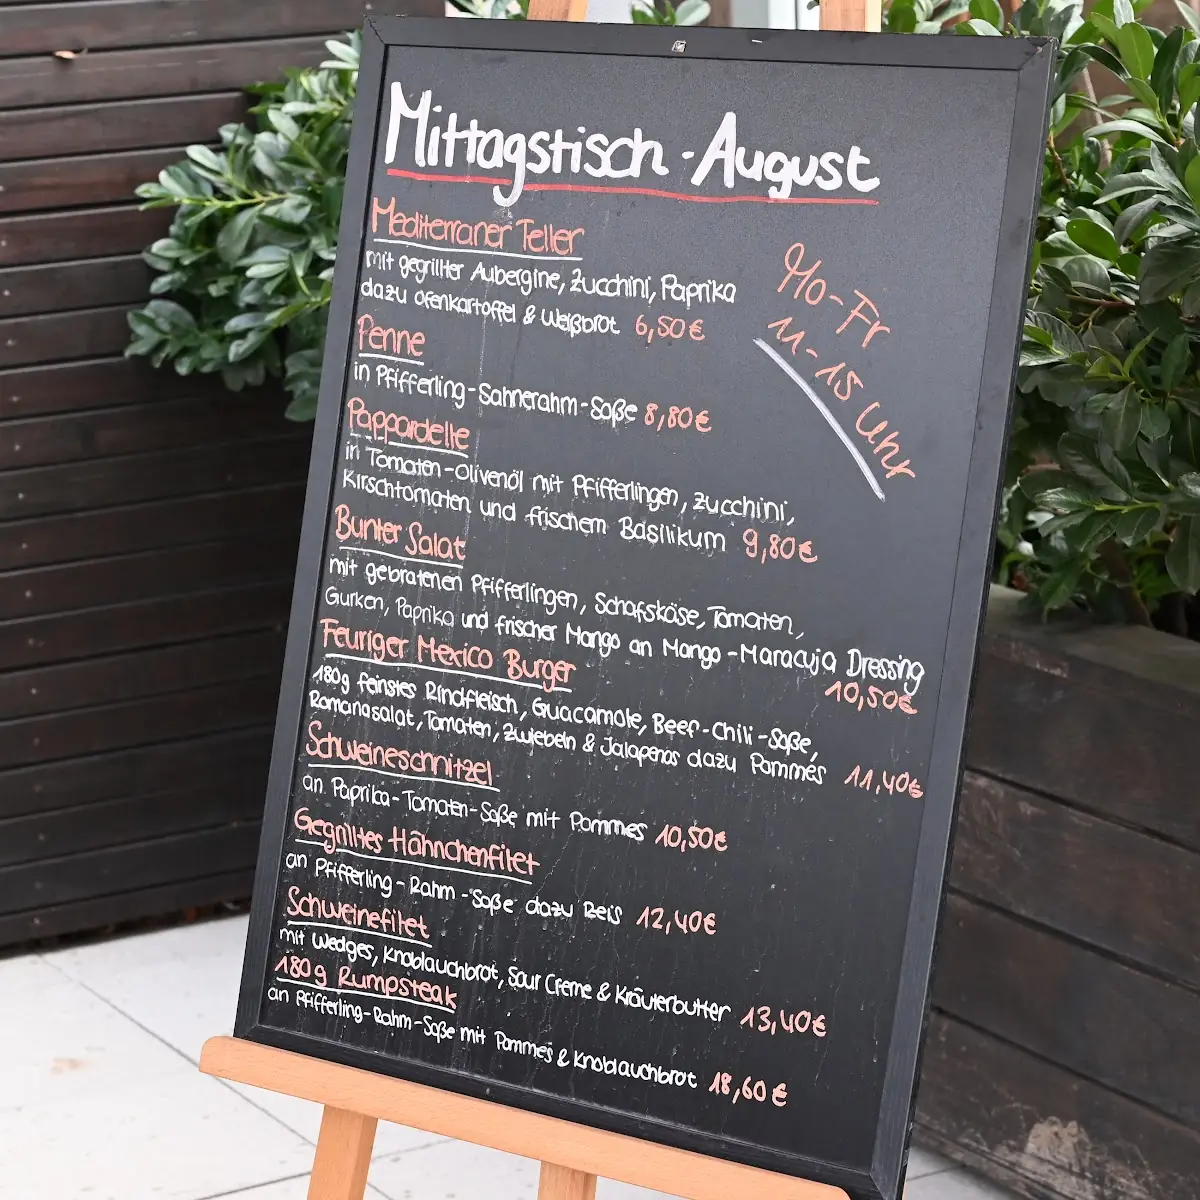 Mittagstisch - August
Mediterraner Teller
mit gegrillter Aubergine, Zucchini, Paprika
dazu Ofenkartoffel & Weißbrot 6,50€
Mo-Fr
11-15 Uhr
Penne
in Pfifferling-Sahnerahm-Soße 8,80€
Pappardelle
in Tomaten-Olivenöl mit Pfifferlingen, Zucchini,
Kirschtomaten und frischem Basilikum 9,80€
Bunter Salat
mit gebratenen Pfifferlingen, Schafskäse, Tomaten,
Gurken, Paprika und frischer Mango an Mango-Maracuja Dressing
10,50€
Feuriger Mexico Burger
180g feinstes Rindfleisch, Guacamole, Beef-Chili-Soße,
Romanasalat, Tomaten, Zwiebeln & Jalapenos dazu Pommes 11,40€
Schweineschnitzel
an Paprika-Tomaten-Soße mit Pommes 10,50€
Gegrilltes Hähnchenfilet
an Pfifferling-Rahm-Soße dazu Reis 12,40€
Schweinefilet
mit Wedges, Knoblauchbrot, Sour Creme & Kräuterbutter 13,40€
180g Rumpsteak
an Pfifferling-Rahm-Soße mit Pommes & Knoblauchbrot 18,60€